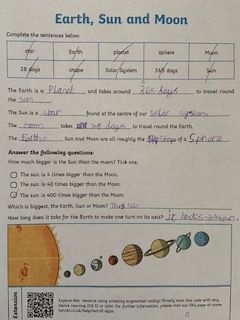 Earth, Sun and Moon
Complete the sentences below.
star Earth planet sphere Moon
28 days shape Solar System 365 days Sun
The Earth is a Planet and takes around 365 days to travel round
the sun.
The Sun is a star found at the centre of our solar system.
The moon takes 28 days to travel round the Earth.
The Earth, Sun and Moon are all roughly the shape of a Sphere
Answer the following questions:
How much bigger is the Sun than the moon? Tick one.
The sun is 4 times bigger than the Moon.
The sun is 40 times bigger than the Moon.
The sun is 400 times bigger than the Moon.
Which is biggest, the Earth, Sun or Moon? The Sun
How long does it take for the Earth to make one turn on its axis? it
Extension
Explore this resource using amazing augmented reality! Simply scan this code with any